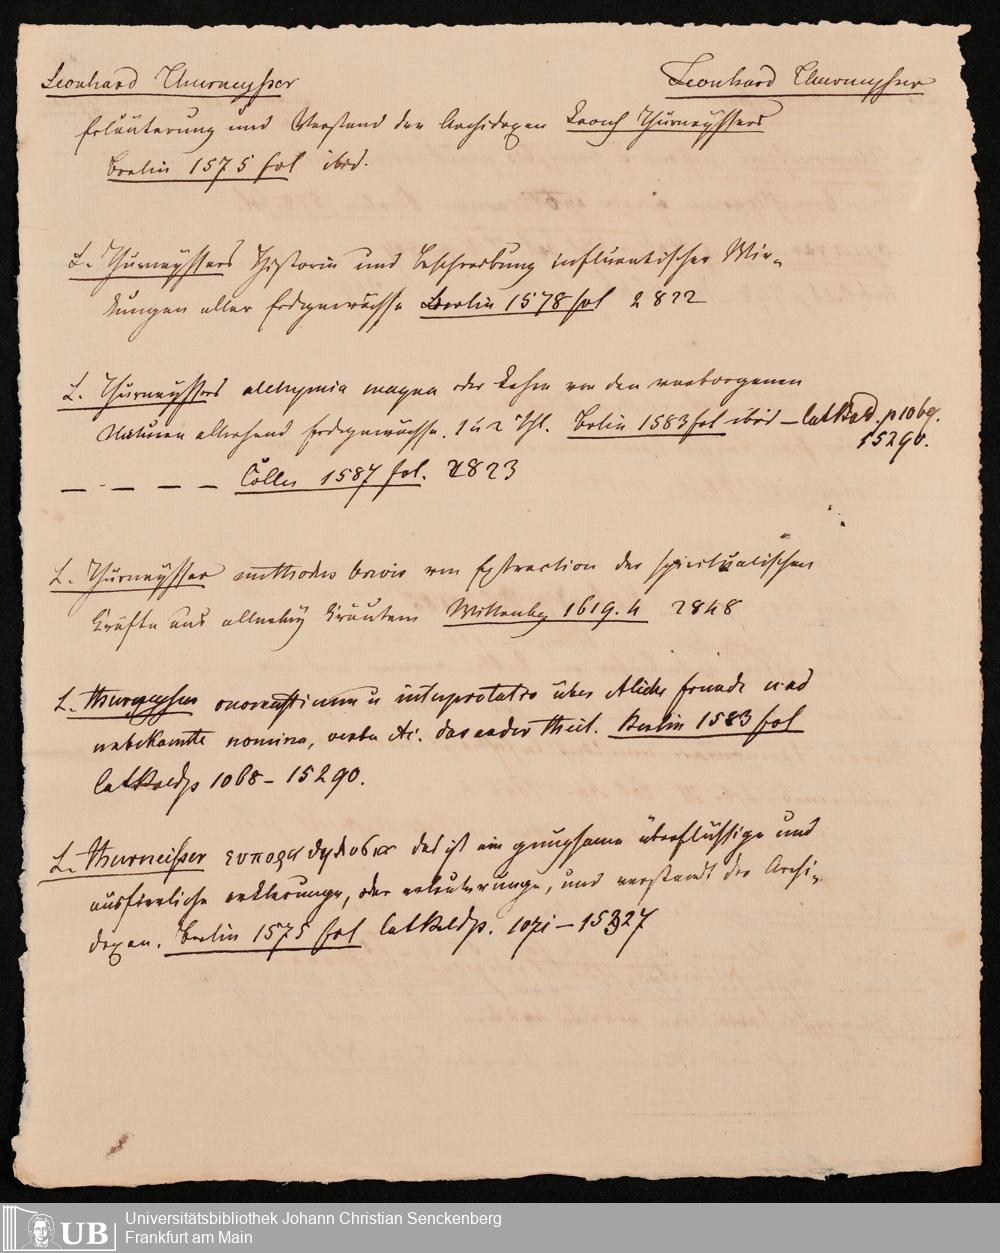 Leonhard Thurneysser Leonhard Thurneysser
Erläuterung und Verstand der Archidoxen Leonh Thurneyssers
Berlin 1575 fol ibid.
L. Thurneyssers Historia und Beschreibung influentischer Wir-
kungen aller Erdgewächse Berlin 1578 fol 2822
L. Thurneyssers alchymia magna oder Lehre von den verborgenen
Naturen allerhand Erdgewächse. 1 u 2 Thl. Berlin 1583 fol ibid – p 1068.
15290.
– – – – Cölln 1587 fol. 2823
L. Thurneysser methodus brevis von Extraction der spiritualischen
Kräfte aus Kräutern Wittenbg 1619. 4 2848
L. Thurneyser onomasticum u interpretatio über etliche fremde und
unbekannte nomina, verba etc. das ander Theil. Berlin 1583 fol
1068 – 15290.
L. Thurneisser ευπορα δηλωσις das ist ein gnugsame überflüssige und
ausfierliche erklerunge, oder erleuterunge, und verstandt der Archi-
doxen. Berlin 1575 fol p. 1071 – 15327
UB
Universitätsbibliothek Johann Christian Senckenberg
Frankfurt am Main